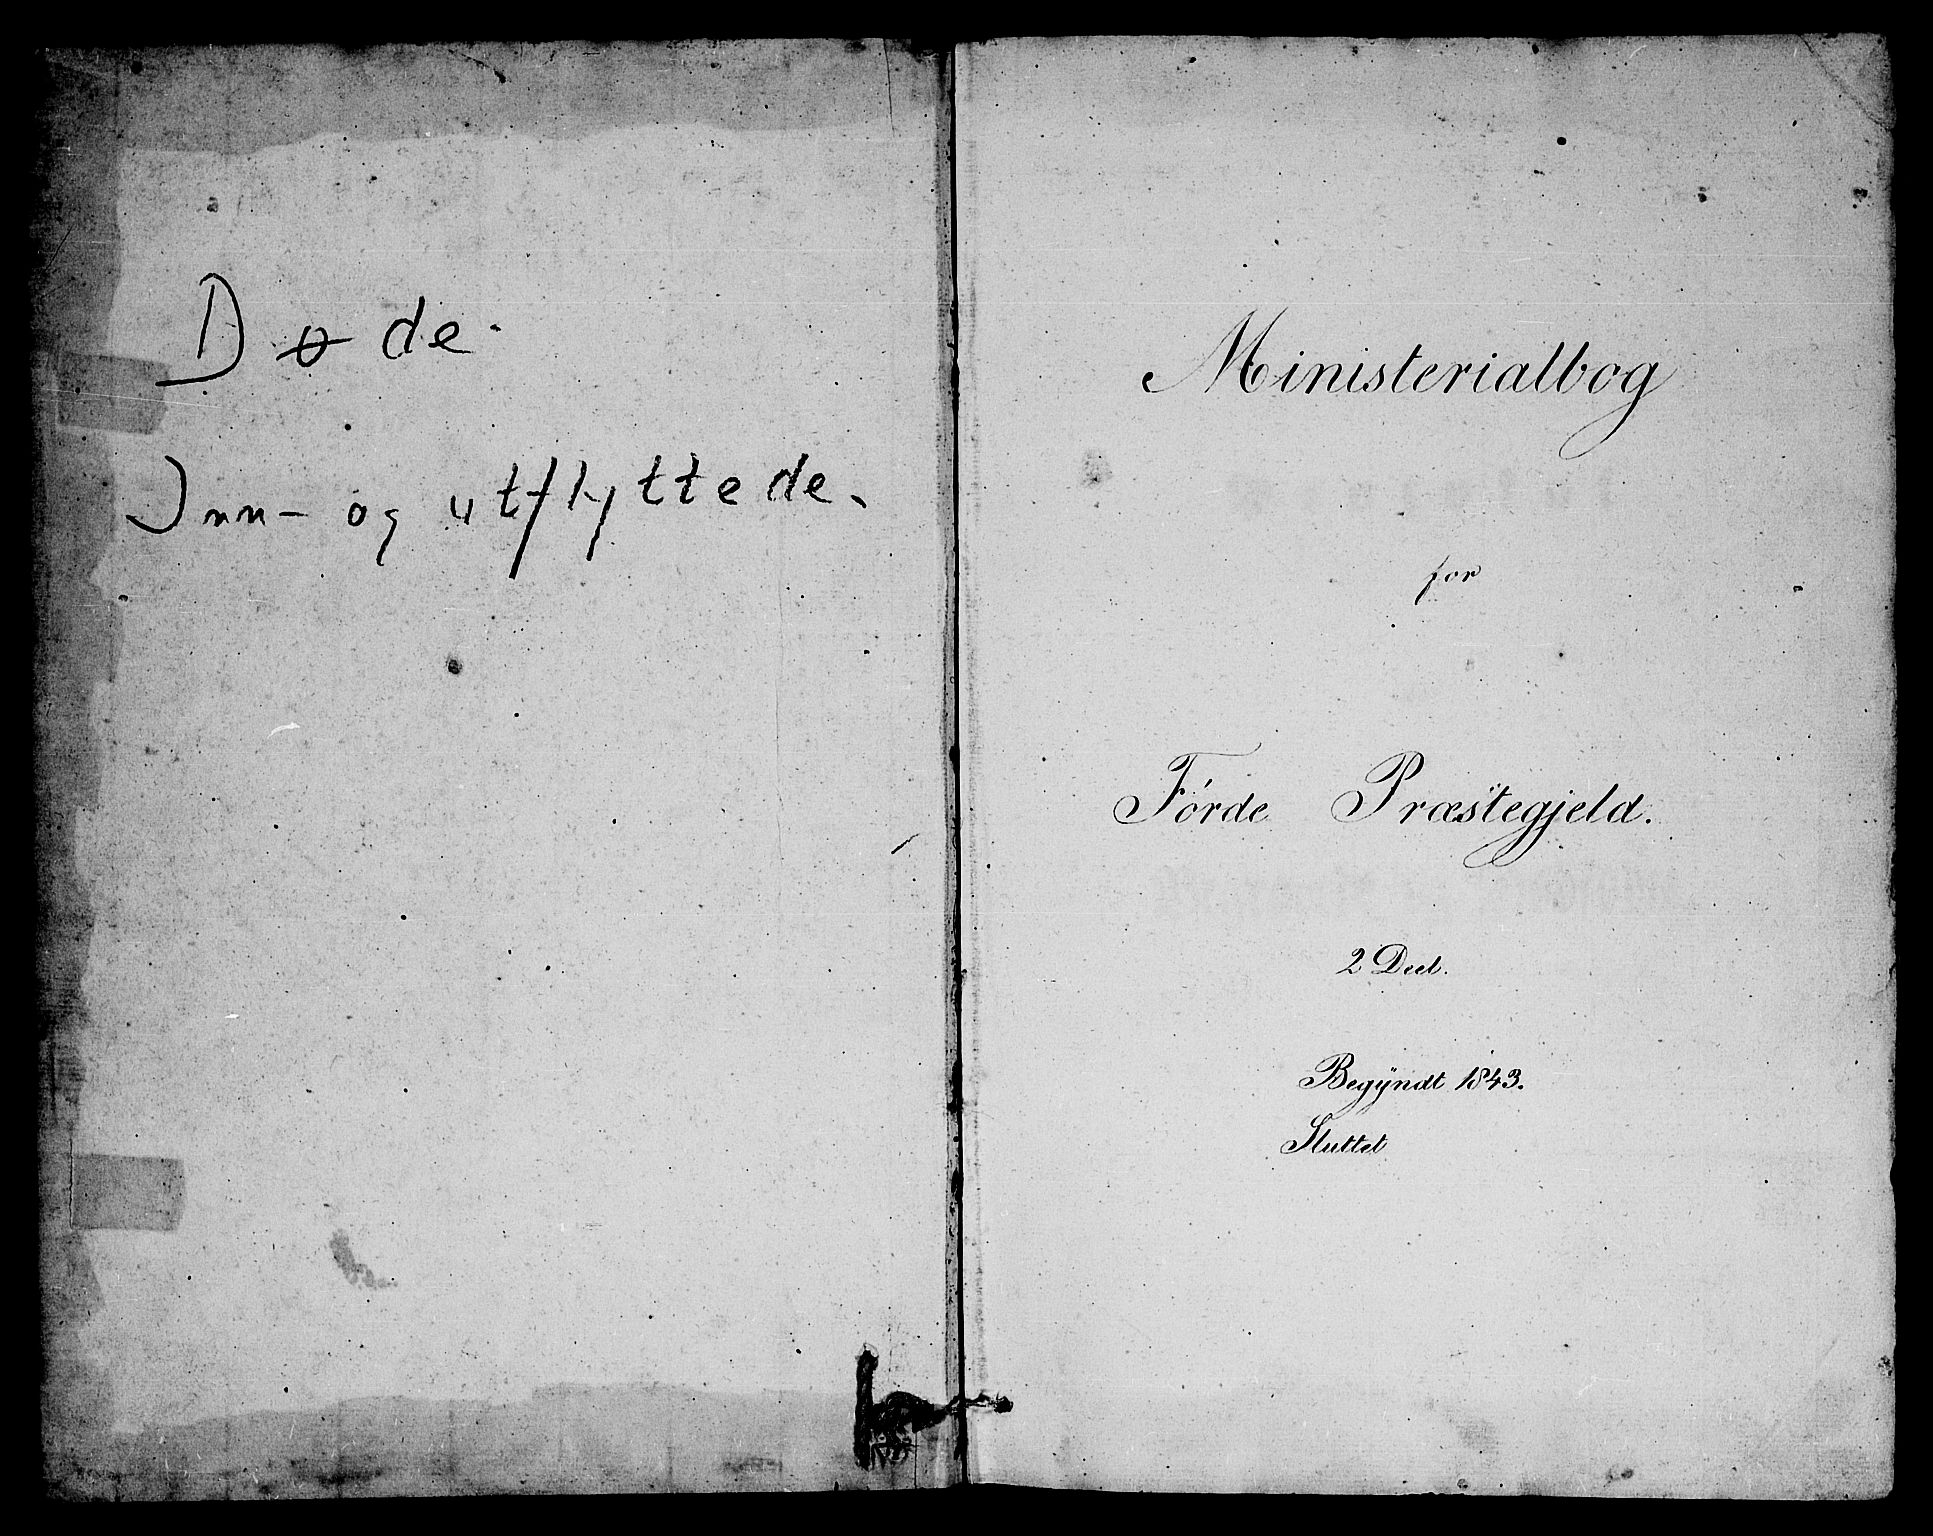 Døde.
Inn- og utflyttede.
Ministerialbog
for
Førde Præstegjeld.
2 Deel.
Begÿndt 1843.
Sluttet